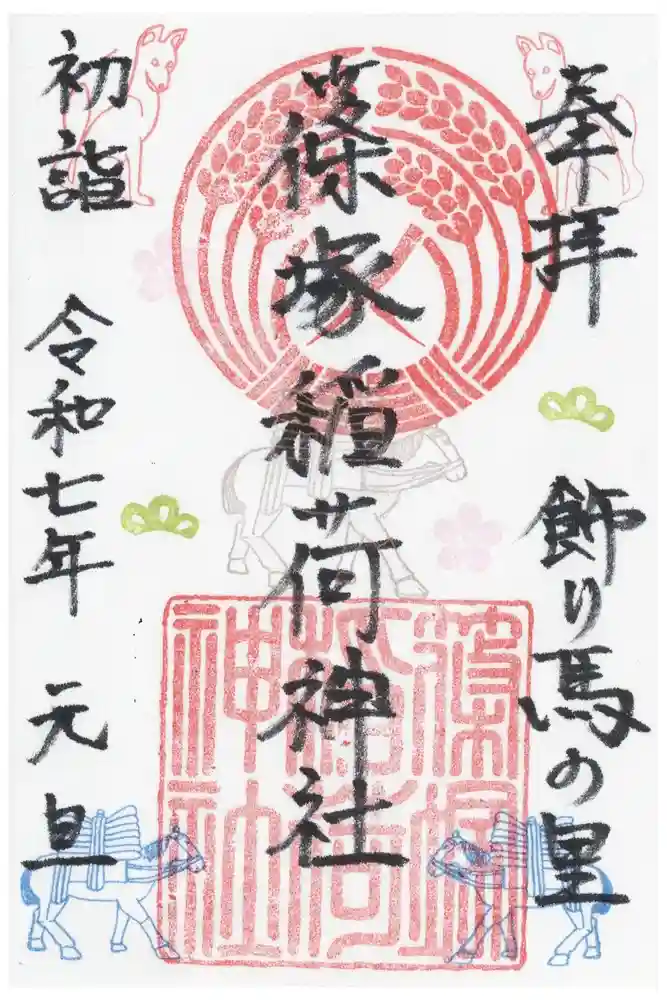 奉拝 飾り馬の里
篠塚稲荷神社
初詣 令和七年 元旦
篠塚
稲荷
神社